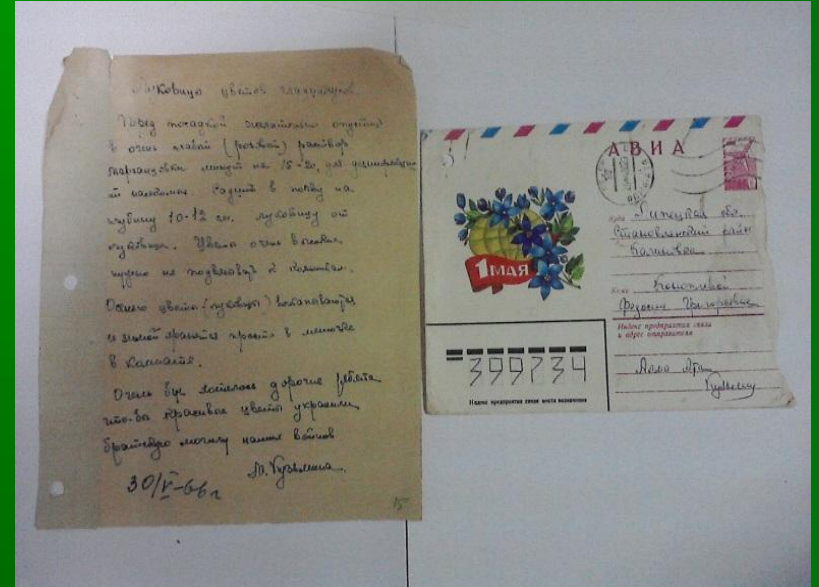 Луковицы цветов гладиолусов.
Перед посадкой желательно опустить
в очень слабый (розовый) раствор
марганцовки минут на 15-20, для дезинфекции
от насекомых. Садить в почву на
глубину 10-12 см. луковицу от
луковицы. Цветы очень высокие
нужно их подвязывать к колышкам.
Осенью цветы (луковицы) выкапываются
и зимой хранятся просто в мешочке
в комнате.
Очень бы хотелось дорогие ребята
что-бы красивые цветы украшали
братскую могилу наших воинов
М. Кузьмина.
30/V-66 г
15
АВИА
1 МАЯ
Куда Липецкая обл.
Становлянский район
Кому
Индекс предприятия связи
и адрес отправителя
399734
Индекс предприятия связи места назначения